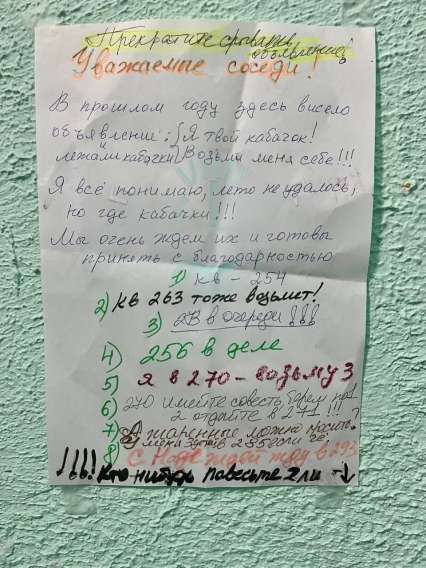 Прекратите срывать
объявление!
Уважаемые соседи!
В прошлом году здесь висело
объявление: Я твой кабачок!
и
лежали кабачки Возьми меня себе!!!
Я всё понимаю, лето не удалось,
но где кабачки!!!
Мы очень ждем их и готовы
принять с благодарностью
1) кв - 254
2) кв 263 тоже возьмет!
3) 2В в очереди!!!
4) 256 в деле
5) Я в 270 - возьму 3
6) 270 имейте совесть, берем по 1
2 отдайте в 271!!!
7) А жаренные можно носить?
у меня зубов 255 если че
8) С Надеждой жду в 293
!!!! Кто нибудь повесьте 2 ли →